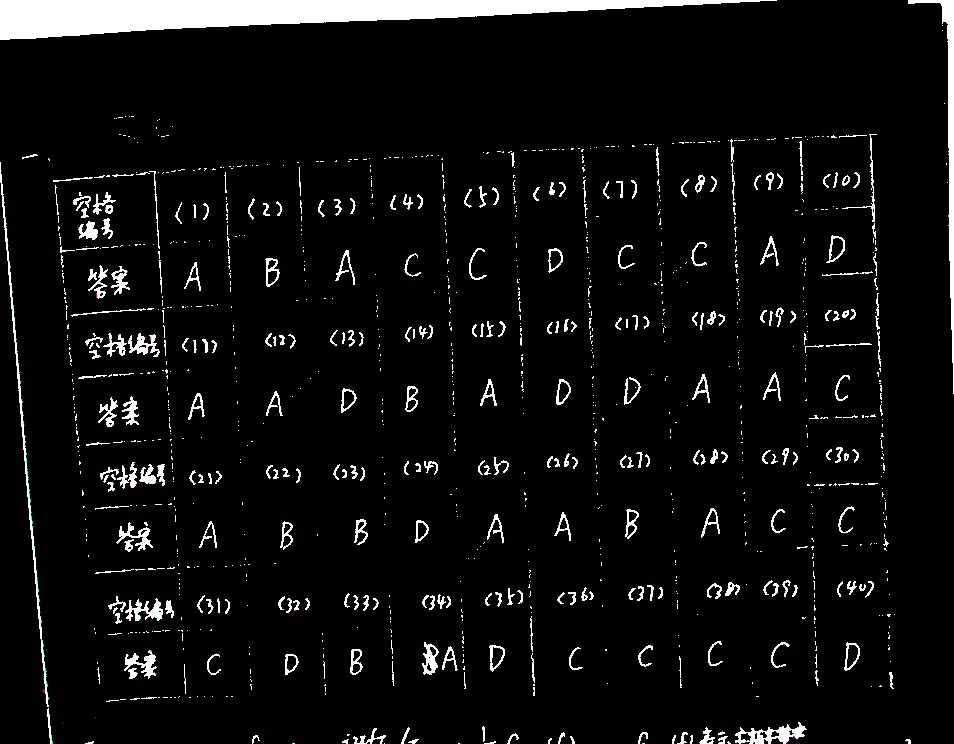 空格编号 (1) (2) (3) (4) (5) (6) (7) (8) (9) (10)
答案 A B A C C D C C A D
空格编号 (11) (12) (13) (14) (15) (16) (17) (18) (19) (20)
答案 A A D B A D D A A C
空格编号 (21) (22) (23) (24) (25) (26) (27) (28) (29) (30)
答案 A B B D A A B A C C
空格编号 (31) (32) (33) (34) (35) (36) (37) (38) (39) (40)
答案 C D B A D C C C C D